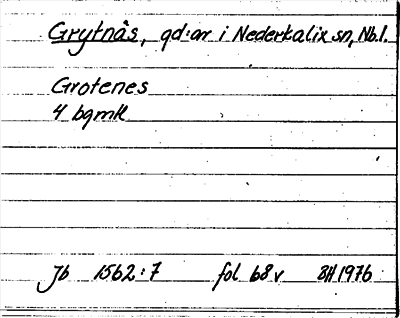 Grytnäs, gd:ar i Nederkalix sn, Nb.l.
Grotenes
4 bgmk
Jb 1562:7 fol 68v BH 1976